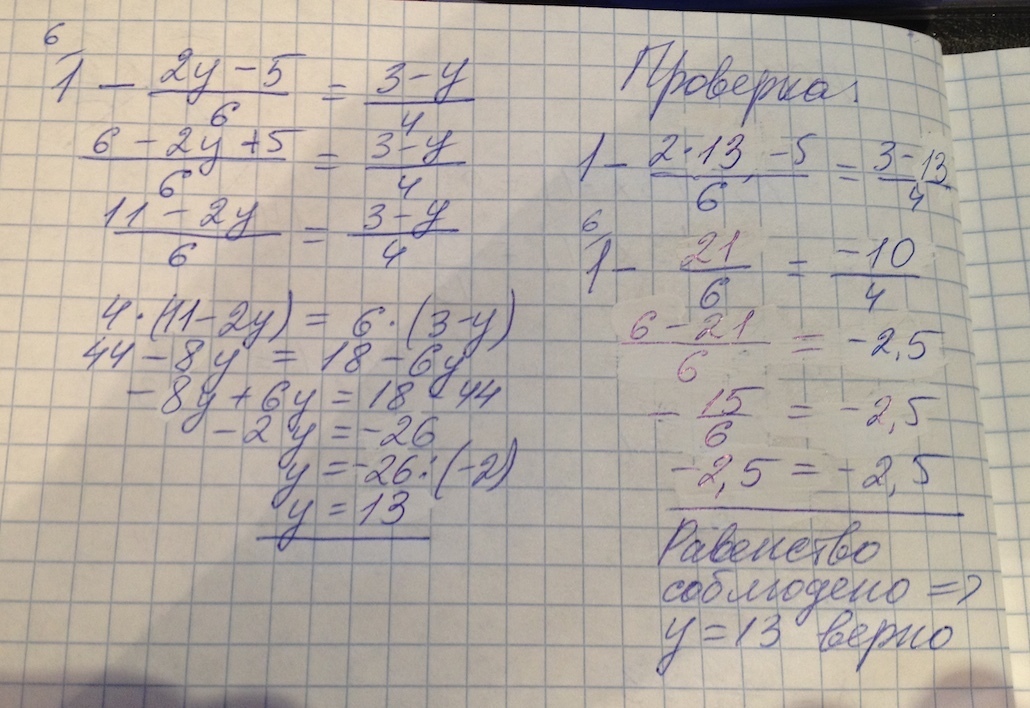 6
1 - (2y - 5)/6 = (3 - y)/4
(6 - 2y + 5)/6 = (3 - y)/4
(11 - 2y)/6 = (3 - y)/4
4·(11 - 2y) = 6·(3 - y)
44 - 8y = 18 - 6y
-8y + 6y = 18 - 44
-2y = -26
y = -26 : (-2)
y = 13
Проверка:
1 - (2·13 - 5)/6 = (3 - 13)/4
6
1 - 21/6 = -10/4
(6 - 21)/6 = -2,5
-15/6 = -2,5
-2,5 = -2,5
Равенство
соблюдено =>
y = 13 верно